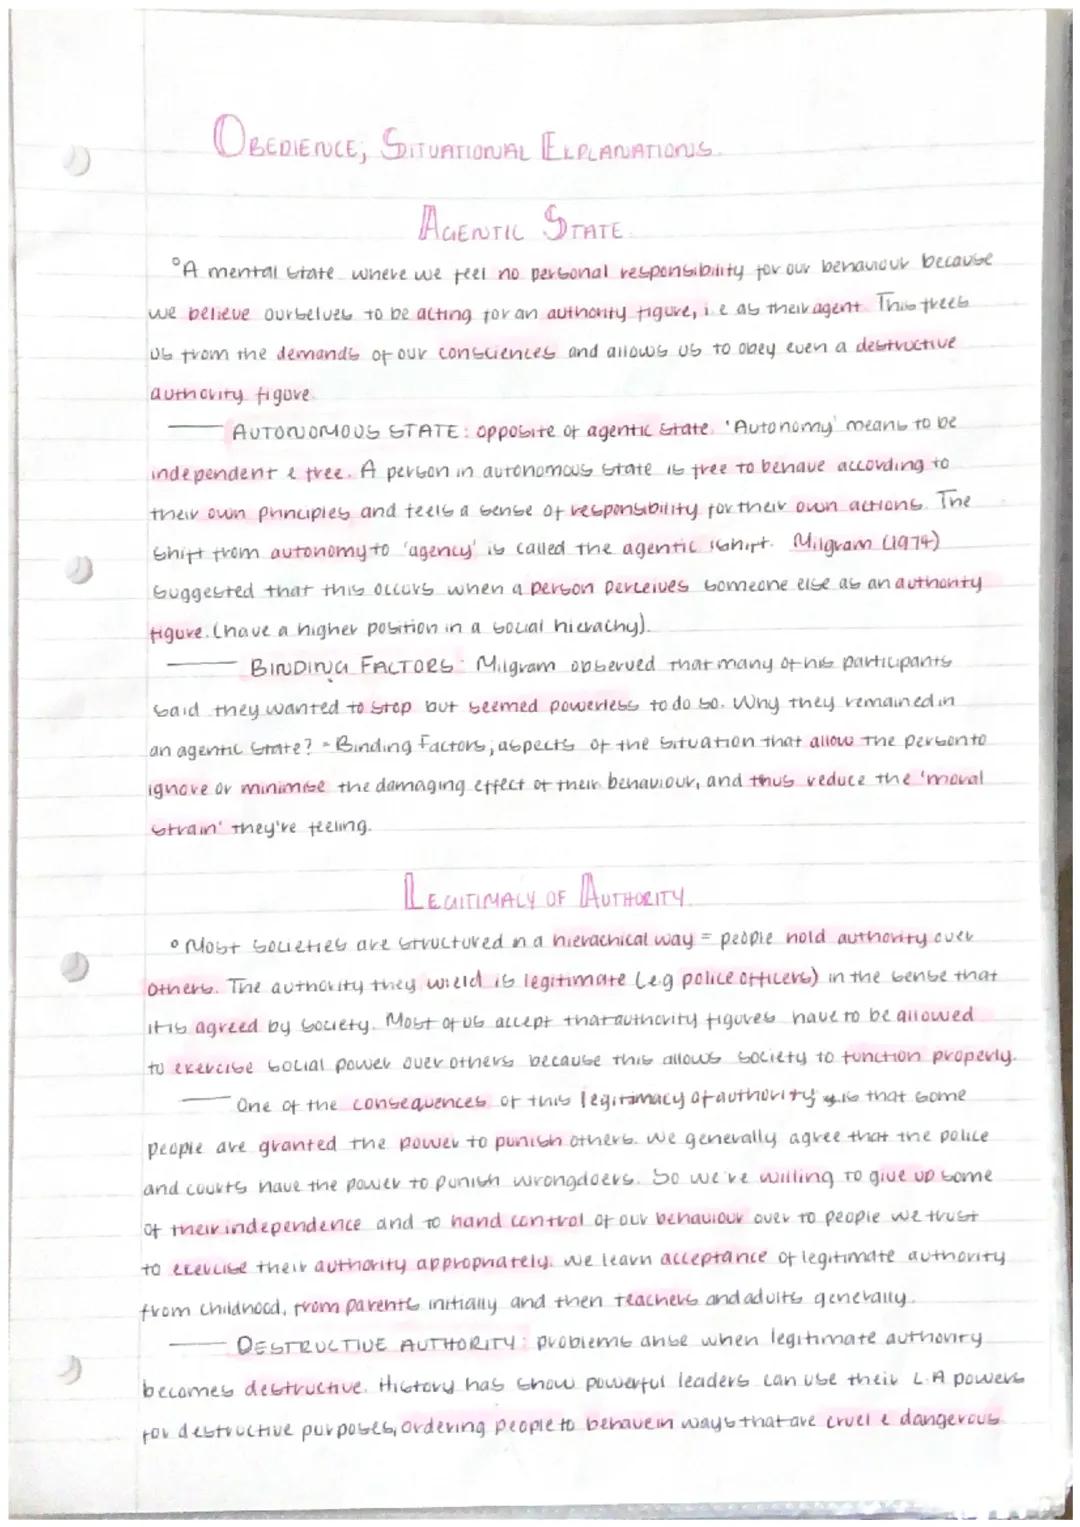 OBEDIENCE; SITUATIONAL EXPLANATIONS.
AGENTIC STATE
°A mental state where we feel no personal responsibility for our behaviour because
we believe ourselves to be acting for an authority figure, i.e as their agent. This frees
us from the demands of our consciences and allows us to obey even a destructive
authority figure.
— AUTONOMOUS STATE: opposite of agentic state. 'Autonomy' means to be
independent & free. A person in autonomous state is free to behave according to
their own principles and feels a sense of responsibility for their own actions. The
shift from autonomy to 'agency' is called the agentic shift. Milgram (1974)
suggested that this occurs when a person perceives someone else as an authority
figure. (have a higher position in a social hierachy).
— BINDING FACTORS: Milgram observed that many of his participants
said they wanted to stop but seemed powerless to do so. Why they remained in
an agentic state? - Binding Factors; aspects of the situation that allow the person to
ignore or minimise the damaging effect of their behaviour, and thus reduce the 'moral
strain' they're feeling.
LEGITIMACY OF AUTHORITY
° Most societies are structured in a hierachical way = people hold authority over
others. The authority they wield is legitimate (e.g police officers) in the sense that
it is agreed by society. Most of us accept that authority figures have to be allowed
to exercise social power over others because this allows society to function properly.
— One of the consequences of this legitimacy of authority is that some
people are granted the power to punish others. We generally agree that the police
and courts have the power to punish wrongdoers. So we're willing to give up some
of their independence and to hand control of our behaviour over to people we trust
to exercise their authority appropriately. We learn acceptance of legitimate authority
from childhood, from parents initially and then teachers and adults generally.
— DESTRUCTIVE AUTHORITY: problems arise when legitimate authority
becomes destructive. History has show powerful leaders can use their L.A powers
for destructive purposes, ordering people to behave in ways that are cruel & dangerous